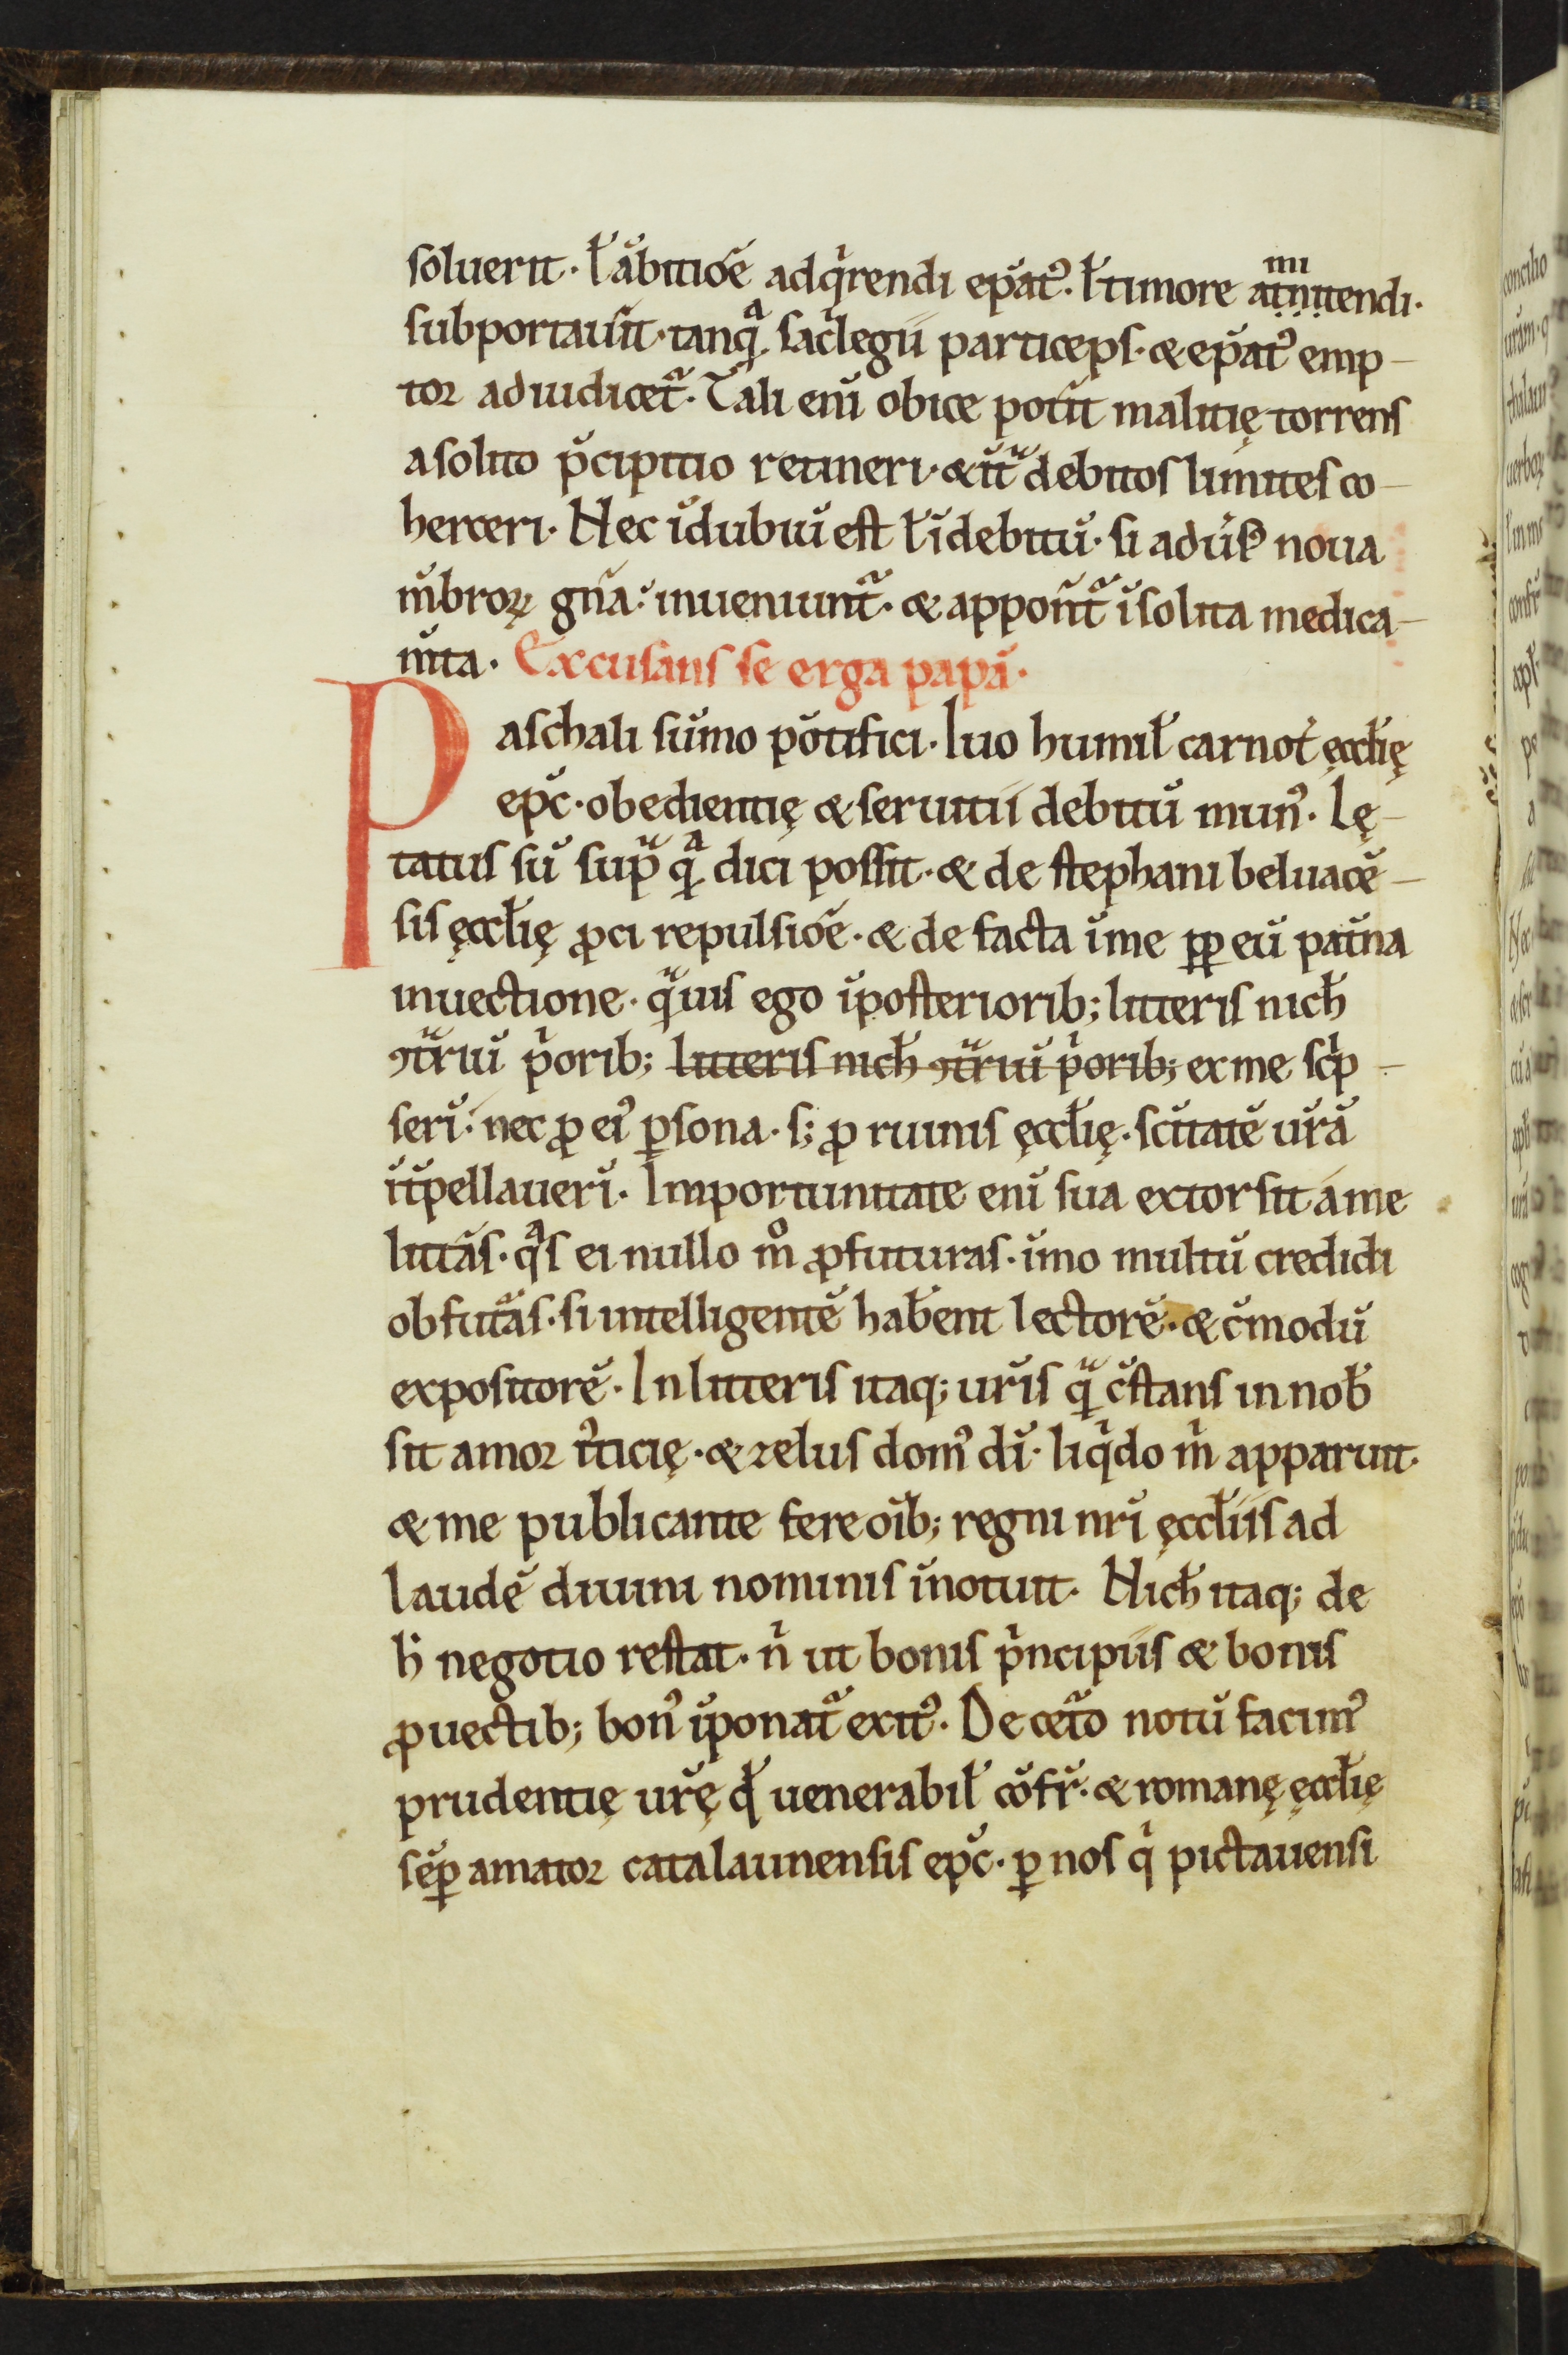 soluerit. ł ābitiōe adqͥrendi epātꝰ. ł timore atnitendi.
mi
subportauīt. tanqͣ sacͥlegii particeps. & epātꝰ emp-
tor adiudicetᷓ. Tali enī obice potīt malitię torrens
a solito p̄cipitio retineri. & īt̄ debitos limites co-
herceri. Nec īdubiū est ł īdebitū. si aduīsꝰ noua
m̄broꝝ gn̄a: inueniuntᷓ. & appon̄tᷓ īsolita medica-
m̄ta. Excusans se erga papā.
Paschali sūmo pōtifici. Iuo humił carnot̄ ęccłię
ep̄c. obedientię & seruitii debitū munꝰ. Lę-
tatus sū sup̄ qͣ dici possit. & de stephani beluacē-
sis ęccłię ꝓci repulsiōe. & de facta ī me ꝓp̄ eū pat̄na
inuectione. qͣuis ego ī posteriorib; litteris nicħ
ꝯtᷓriū pͥorib; litteris nicħ ꝯtᷓriū pͥorib; ex me scͥp-
serī: nec ꝓ eiꝰ ꝑsona. s; ꝓ ruinis ęccłię. sc̄itatē ur̄ā
īt̄pellauerī. Importunitate enī sua extorsit a me
litt̄as. qͣs ei nullo mͦ ꝓfuturas. īmo multū credidi
obfutᷓas. si intelligentē hab̄ent lectorē. & c̄modū
expositorē. In litteris itaq; ur̄is qͣ c̄stans in nob̄
sit amor iͥticię. & zelus domꝰ dī. liqͥdo mͥ apparuit.
& me publicante fere oīb; regni nr̄i ęccłiis ad
laudē diuini nominis īnotuit. Nicħ itaq; de
ħ negotio restat. nͥ ut bonis pͥncipiis & bonis
ꝓuectib; bonꝰ īponatᷓ exitꝰ. De cet̄o notū facimꝰ
prudentię ur̄ę qđ uenerabił cōfr̄. & romanę ęccłię
sēꝑ amator catalaunensis ep̄c. ꝑ nos qͥ pictauensi